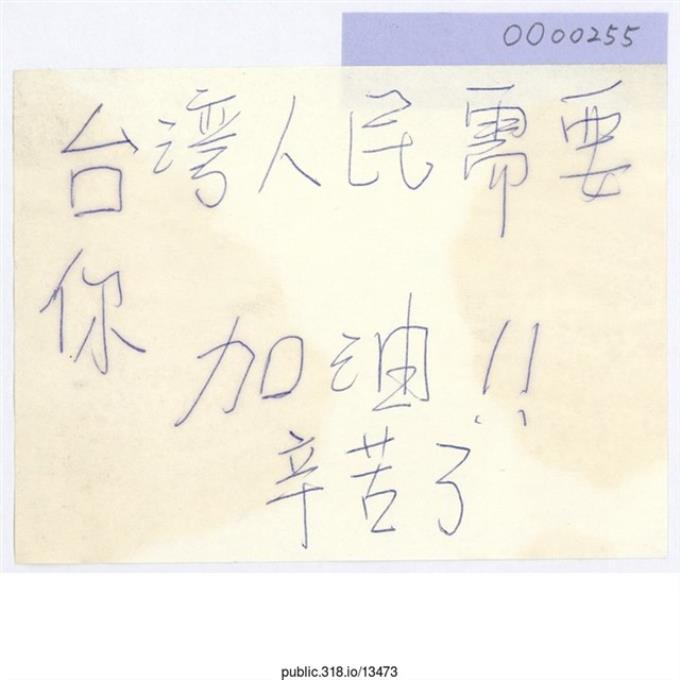 0000255
台湾人民需要
你
加油!!
辛苦了
public.318.io/13473